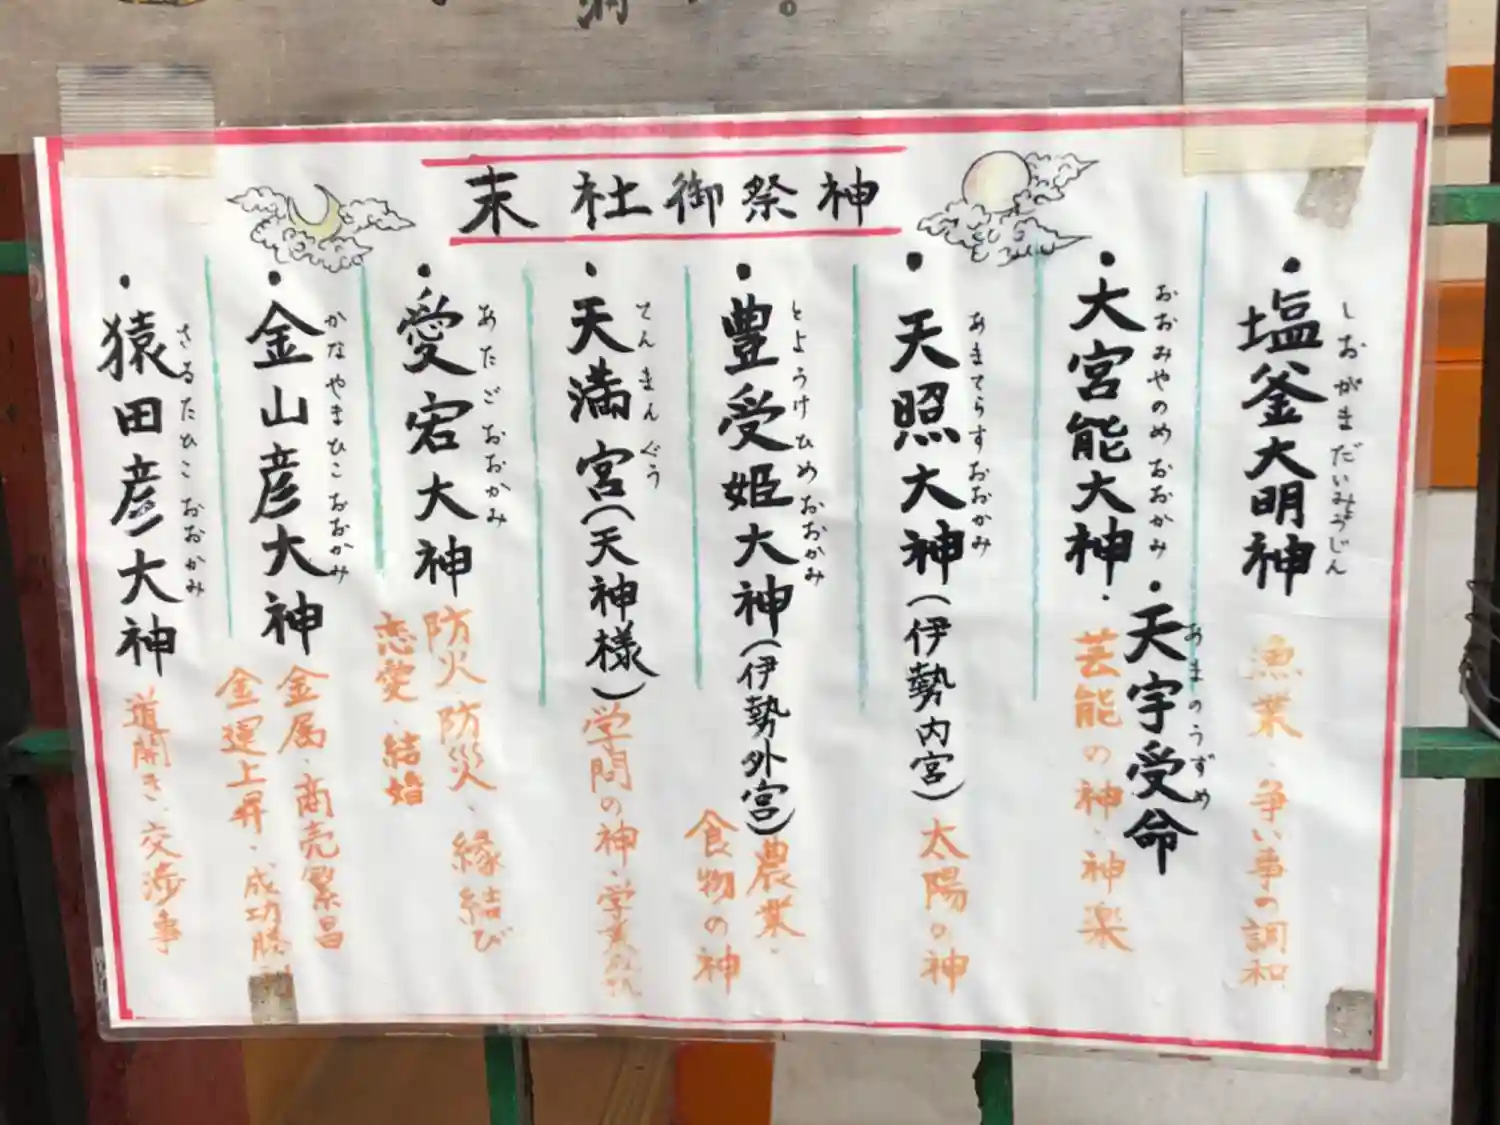 末社御祭神
・塩釜大明神
しおがまだいみょうじん
漁業・争い事の調和
・大宮能大神・
おおみやのめおおかみ
・天宇受命
あまのうずめ
芸能の神・神楽
・天照大神(伊勢内宮)
あまてらすおおかみ
太陽の神
・豊受姫大神(伊勢外宮)
とようけひめおおかみ
農業・
食物の神
・天満宮(天神様)
てんまんぐう
学問の神・学業
・愛宕大神
あたごおおかみ
防火・防災・縁結び
恋愛・結婚
・金山彦大神
かなやまひこおおかみ
金属・商売繁昌
金運上昇・成功勝利
・猿田彦大神
さるたひこおおかみ
道開き・交渉事